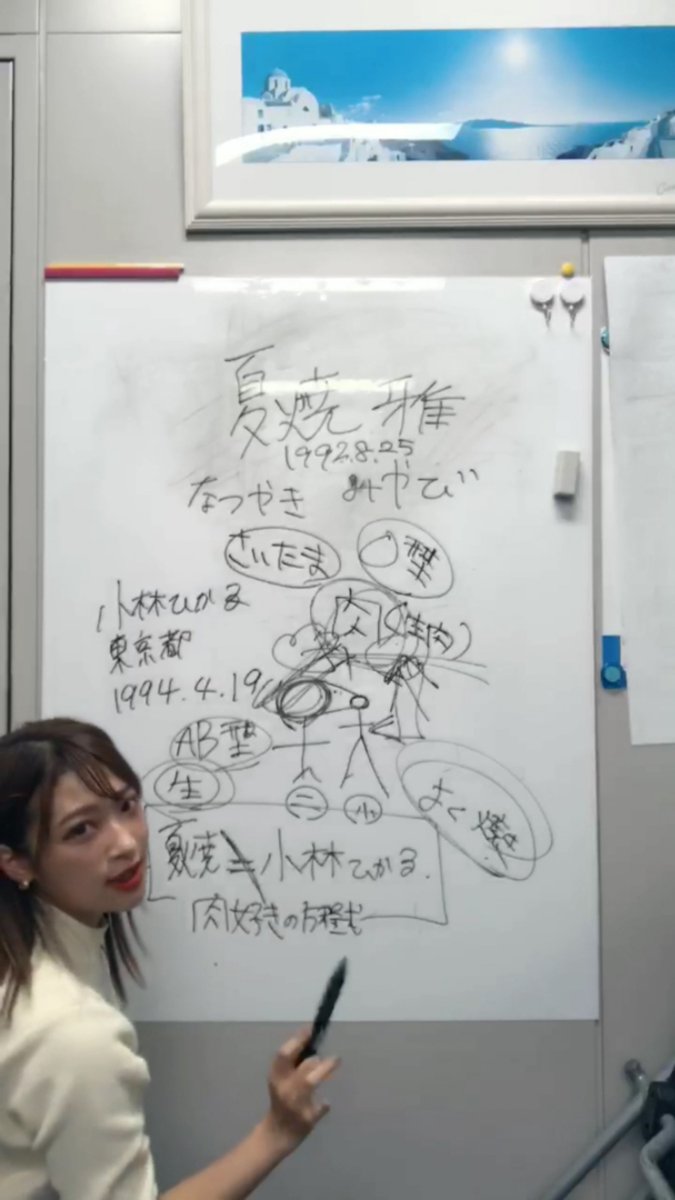 夏焼 雅
1992.8.25
なつやき みやび
さいたま
〇型
小林ひかる
東京都
1994.4.19
肉(生肉)
AB型
生
二 小
よく焼き
夏焼≠小林ひかる.
肉好きの方程式